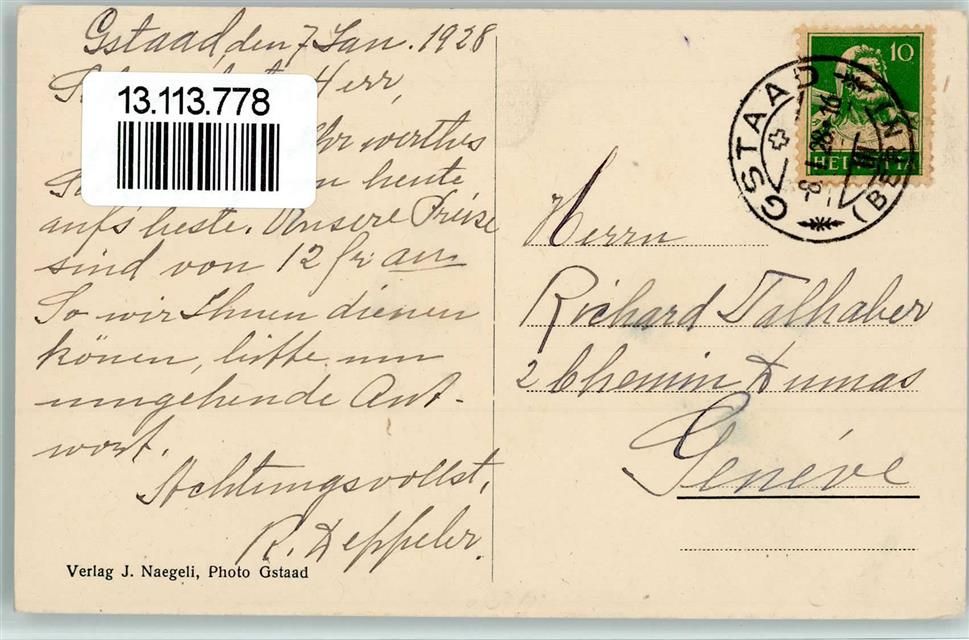 Gstaad, den 7 Jan. 1928
Herr,
13.113.778
Ihr werthes
heute
aufs beste. Unsere Preise
sind von 12 fr. an
So wir Ihnen dienen
könen, bitte um
umgehende Ant-
wort.
Achtungsvollst,
R. Deppeler.
Verlag J. Naegeli, Photo Gstaad
10
HELVETIA
GSTAAD
(BERN)
Herrn
Richard Talhaber
2 Chemin Dumas
Genéve